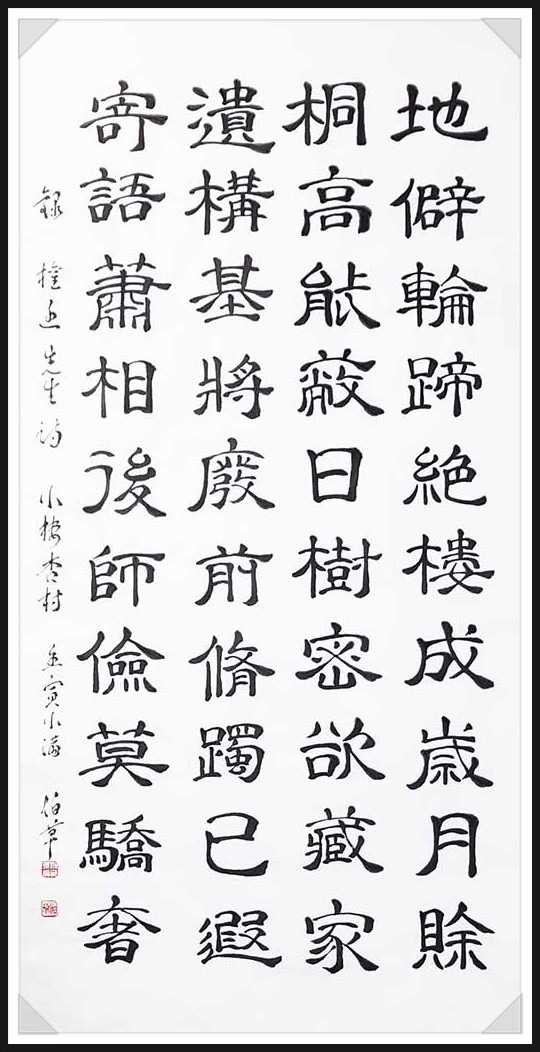 地僻輪蹄絶樓成歲月賖
桐高能蔽日樹密欲藏家
遺構基將廢前脩躅已遐
寄語蕭相後師儉莫驕奢
錄 先生詩 杏村 壬寅小滿